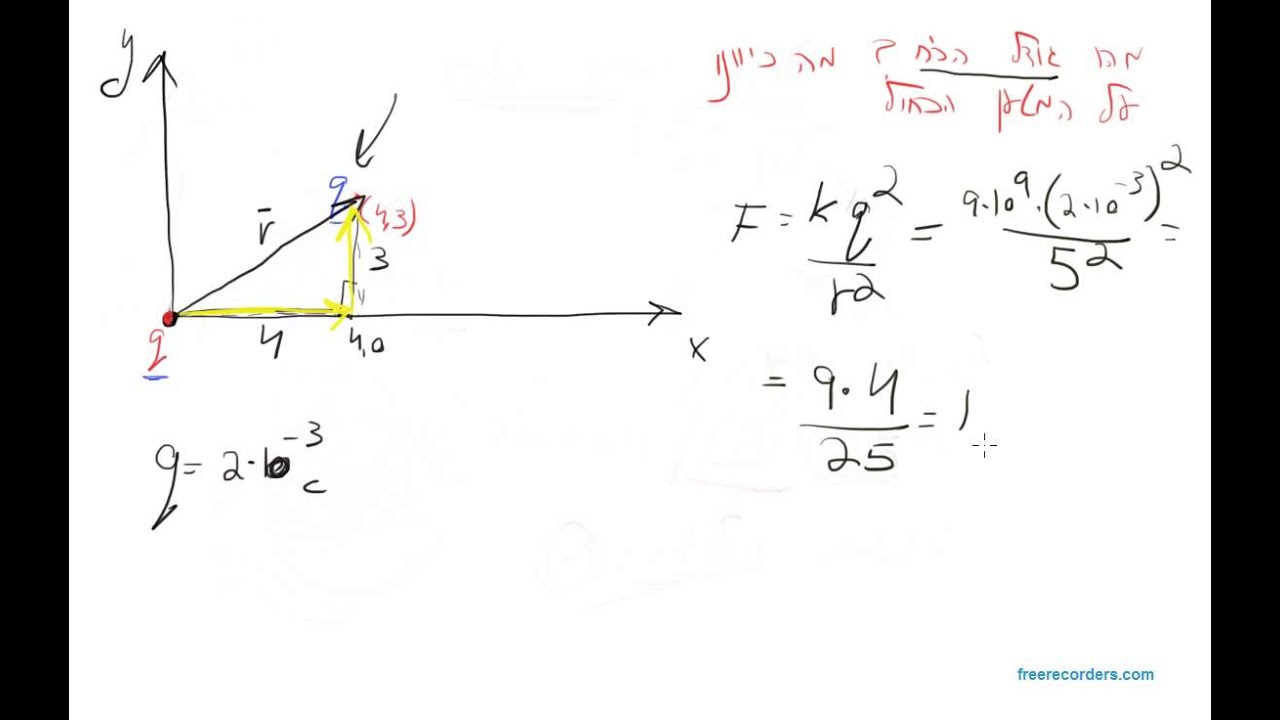 מהו גודל הכח ? מה כיוונו
על המטען הכחול
y
q
(4,3)
r̄
3
q
4
4,0
x
q = 2·10⁻³ c
F = kq²/r² = 9·10⁹·(2·10⁻³)²/5² =
= 9·4/25 = 1
freerecorders.com